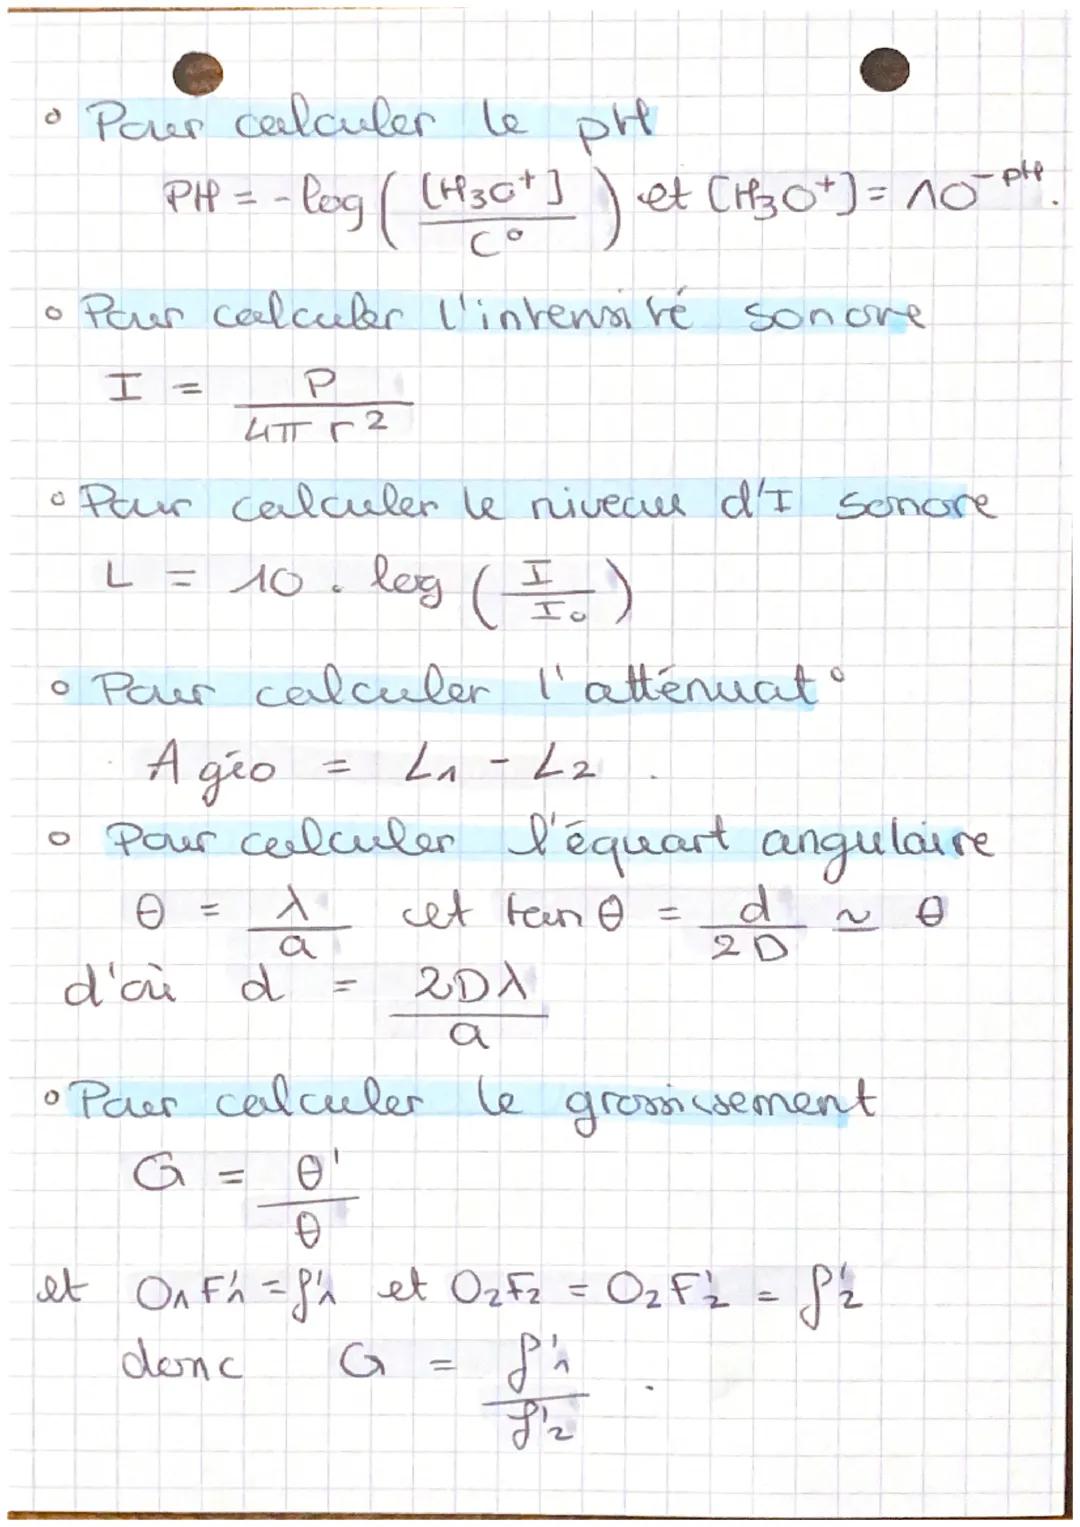 ° Pour calculer le pH
PH = -log ( [H₃O⁺] / C° ) et [H₃O⁺] = 10^-pH.
° Pour calculer l'intensité sonore
I = P / 4π r²
° Pour calculer le niveau d'I sonore
L = 10 . log ( I / I₀ )
° Pour calculer l'atténuat°
A géo = L₁ - L₂.
° Pour calculer l'équart angulaire
θ = λ / a et tan θ = d / 2D ~ θ
d'où d = 2Dλ / a
° Pour calculer le grossissement
G = θ' / θ
et O₁F'₁ = f'₁ et O₂F₂ = O₂F'₂ = f'₂
donc G = f'₁ / f'₂.